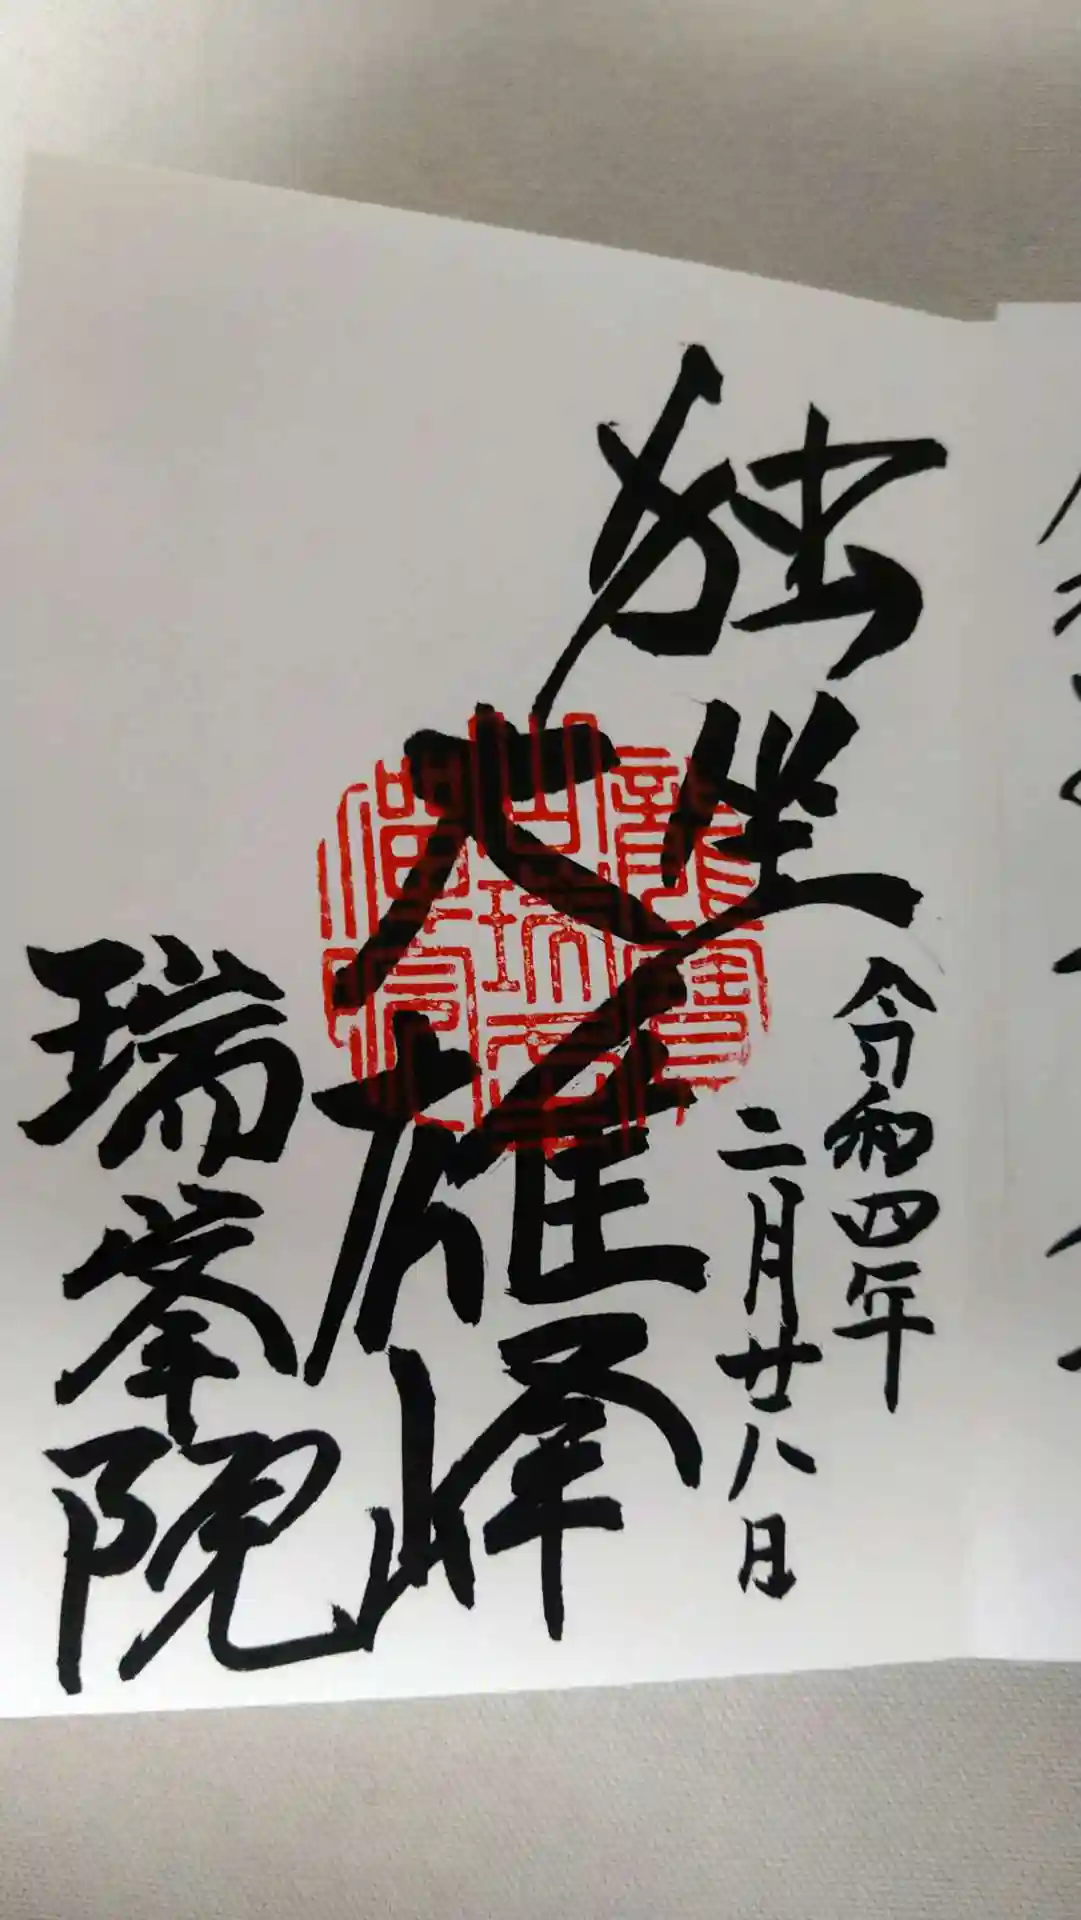 独坐
大雄峰
令和四年
二月廿八日
瑞峯院